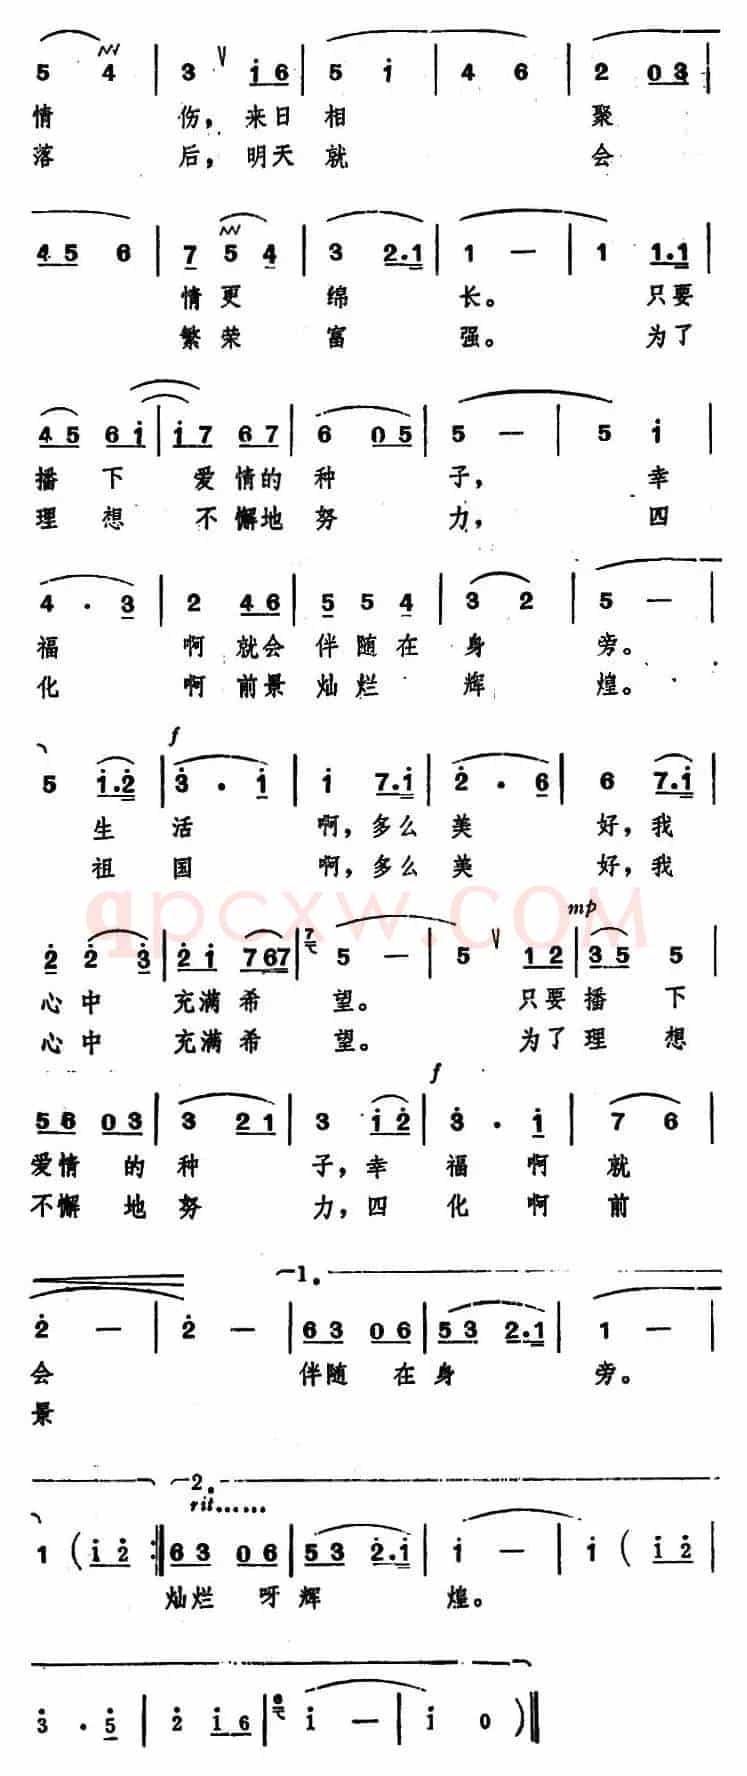 5 4 | 3 V i 6 | 5 i | 4 6 | 2 0 3 |
情 伤，来日 相 聚
落 后，明天 就 会
4 5 6 | 7 5 4 | 3 2. 1 | 1 — | 1 1. 1 |
情 更 绵 长。 只要
繁 荣 富 强。 为了
4 5 6 i | i 7 6 7 | 6 0 5 | 5 — | 5 i |
播 下 爱 情的 种 子， 幸
理 想 不 懈地 努 力， 四
4 . 3 | 2 4 6 | 5 5 4 | 3 2 | 5 — |
福 啊 就会 伴 随 在 身 旁。
化 啊 前景 灿 烂 辉 煌。
f
5 i. 2 | 3 . i | i 7. i | 2 . 6 | 6 7. i |
生 活 啊，多么 美 好，我
祖 国 啊，多么 美 好，我
qpcxw.COM
mp
2 2 3 | 2 i 7 6 7 | 7 5 — | 5 V 1 2 | 3 5 5 |
心 中 充满 希 望。 只要 播 下
心 中 充满 希 望。 为了 理 想
f
5 6 0 3 | 3 2 1 | 3 i 2 | 3 . i | 7 6 |
爱情 的 种 子，幸 福 啊 就
不懈 地 努 力，四 化 啊 前
1.
2 — | 2 — | 6 3 0 6 | 5 3 2. 1 | 1 — |
会 伴随 在 身 旁。
景
2.
rit......
1 ( i 2 :‖ 6 3 0 6 | 5 3 2. i | i — | i ( i 2 |
灿烂 呀 辉 煌。
3 . 5 | 2 i 6 | 6 i — | i 0 ) ‖